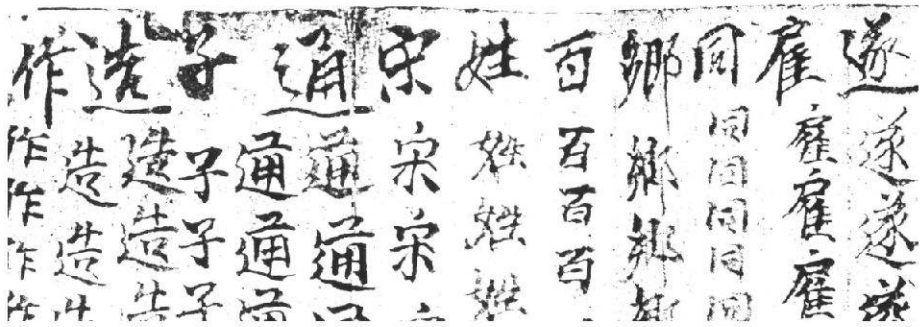 遂遂遂遂
雇雇雇雇
同同同同同同
鄉鄉鄉鄉
百百百百
姓姓姓姓
宋宋宋
通通通通
通通通
子子子子
造造造造
造造造
作作作作作